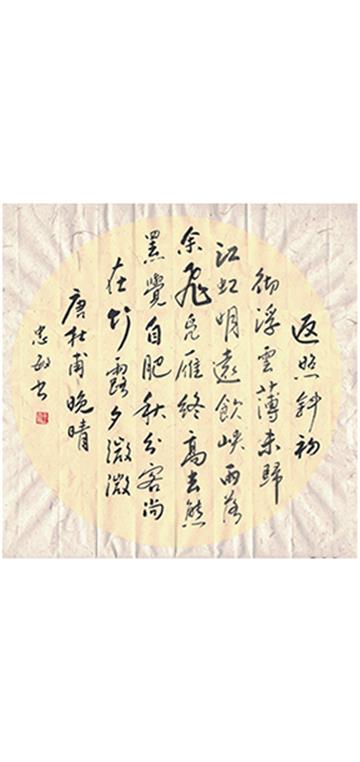 返照斜初
彻浮雲薄未歸
江虹明遠飲峡雨落
余飛凫雁終高去熊
罴覺自肥秋分客尚
在竹露夕微微
唐杜甫晚晴
忠敏书